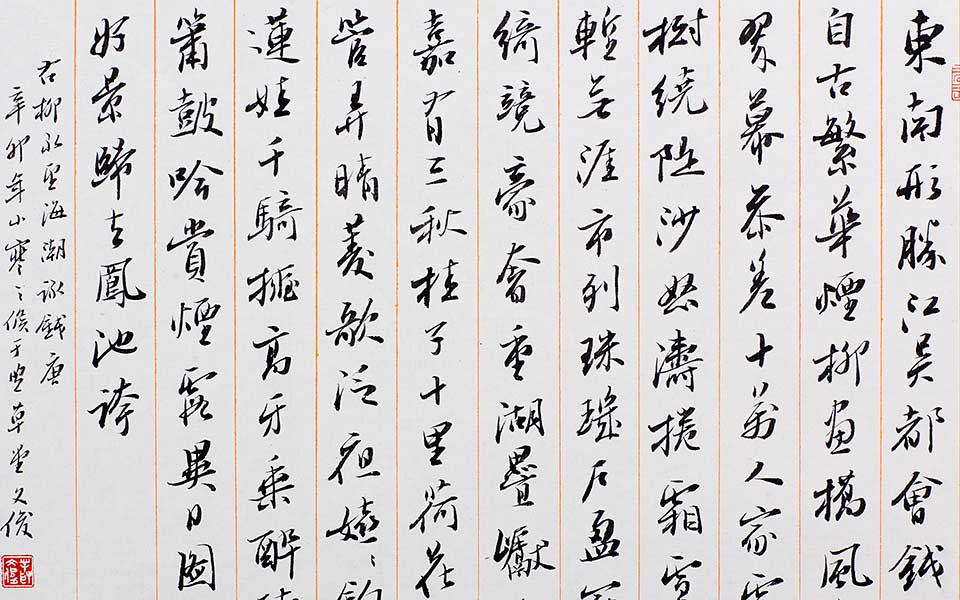 東南形勝江吳都會錢
自古繁華煙柳畫橋風
翠幕參差十萬人家
樹繞隄沙怒濤捲霜雪
塹無涯市列珠璣戶盈
綺競豪奢重湖疊巘
嘉有三秋桂子十里荷花
管弄晴菱歌泛夜嬉〻釣
蓮娃千騎擁高牙乘醉
簫鼓吟賞煙霞異日圖
好景歸去鳳池誇
右柳永望海潮詠錢唐
辛卯年小寒之候于草堂文俊